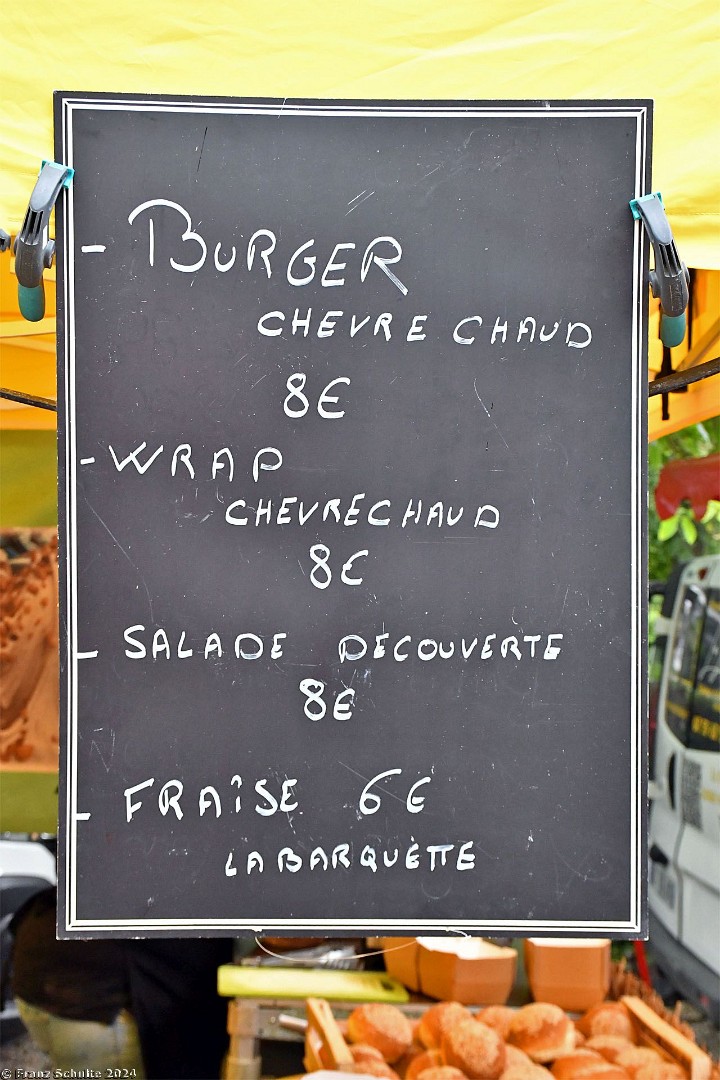 - BURGER
CHEVRE CHAUD
8€
- WRAP
CHEVRE CHAUD
8€
- SALADE DECOUVERTE
8€
- FRAÎSE 6€
LA BARQUÈTTE
© Franz Schulte 2024